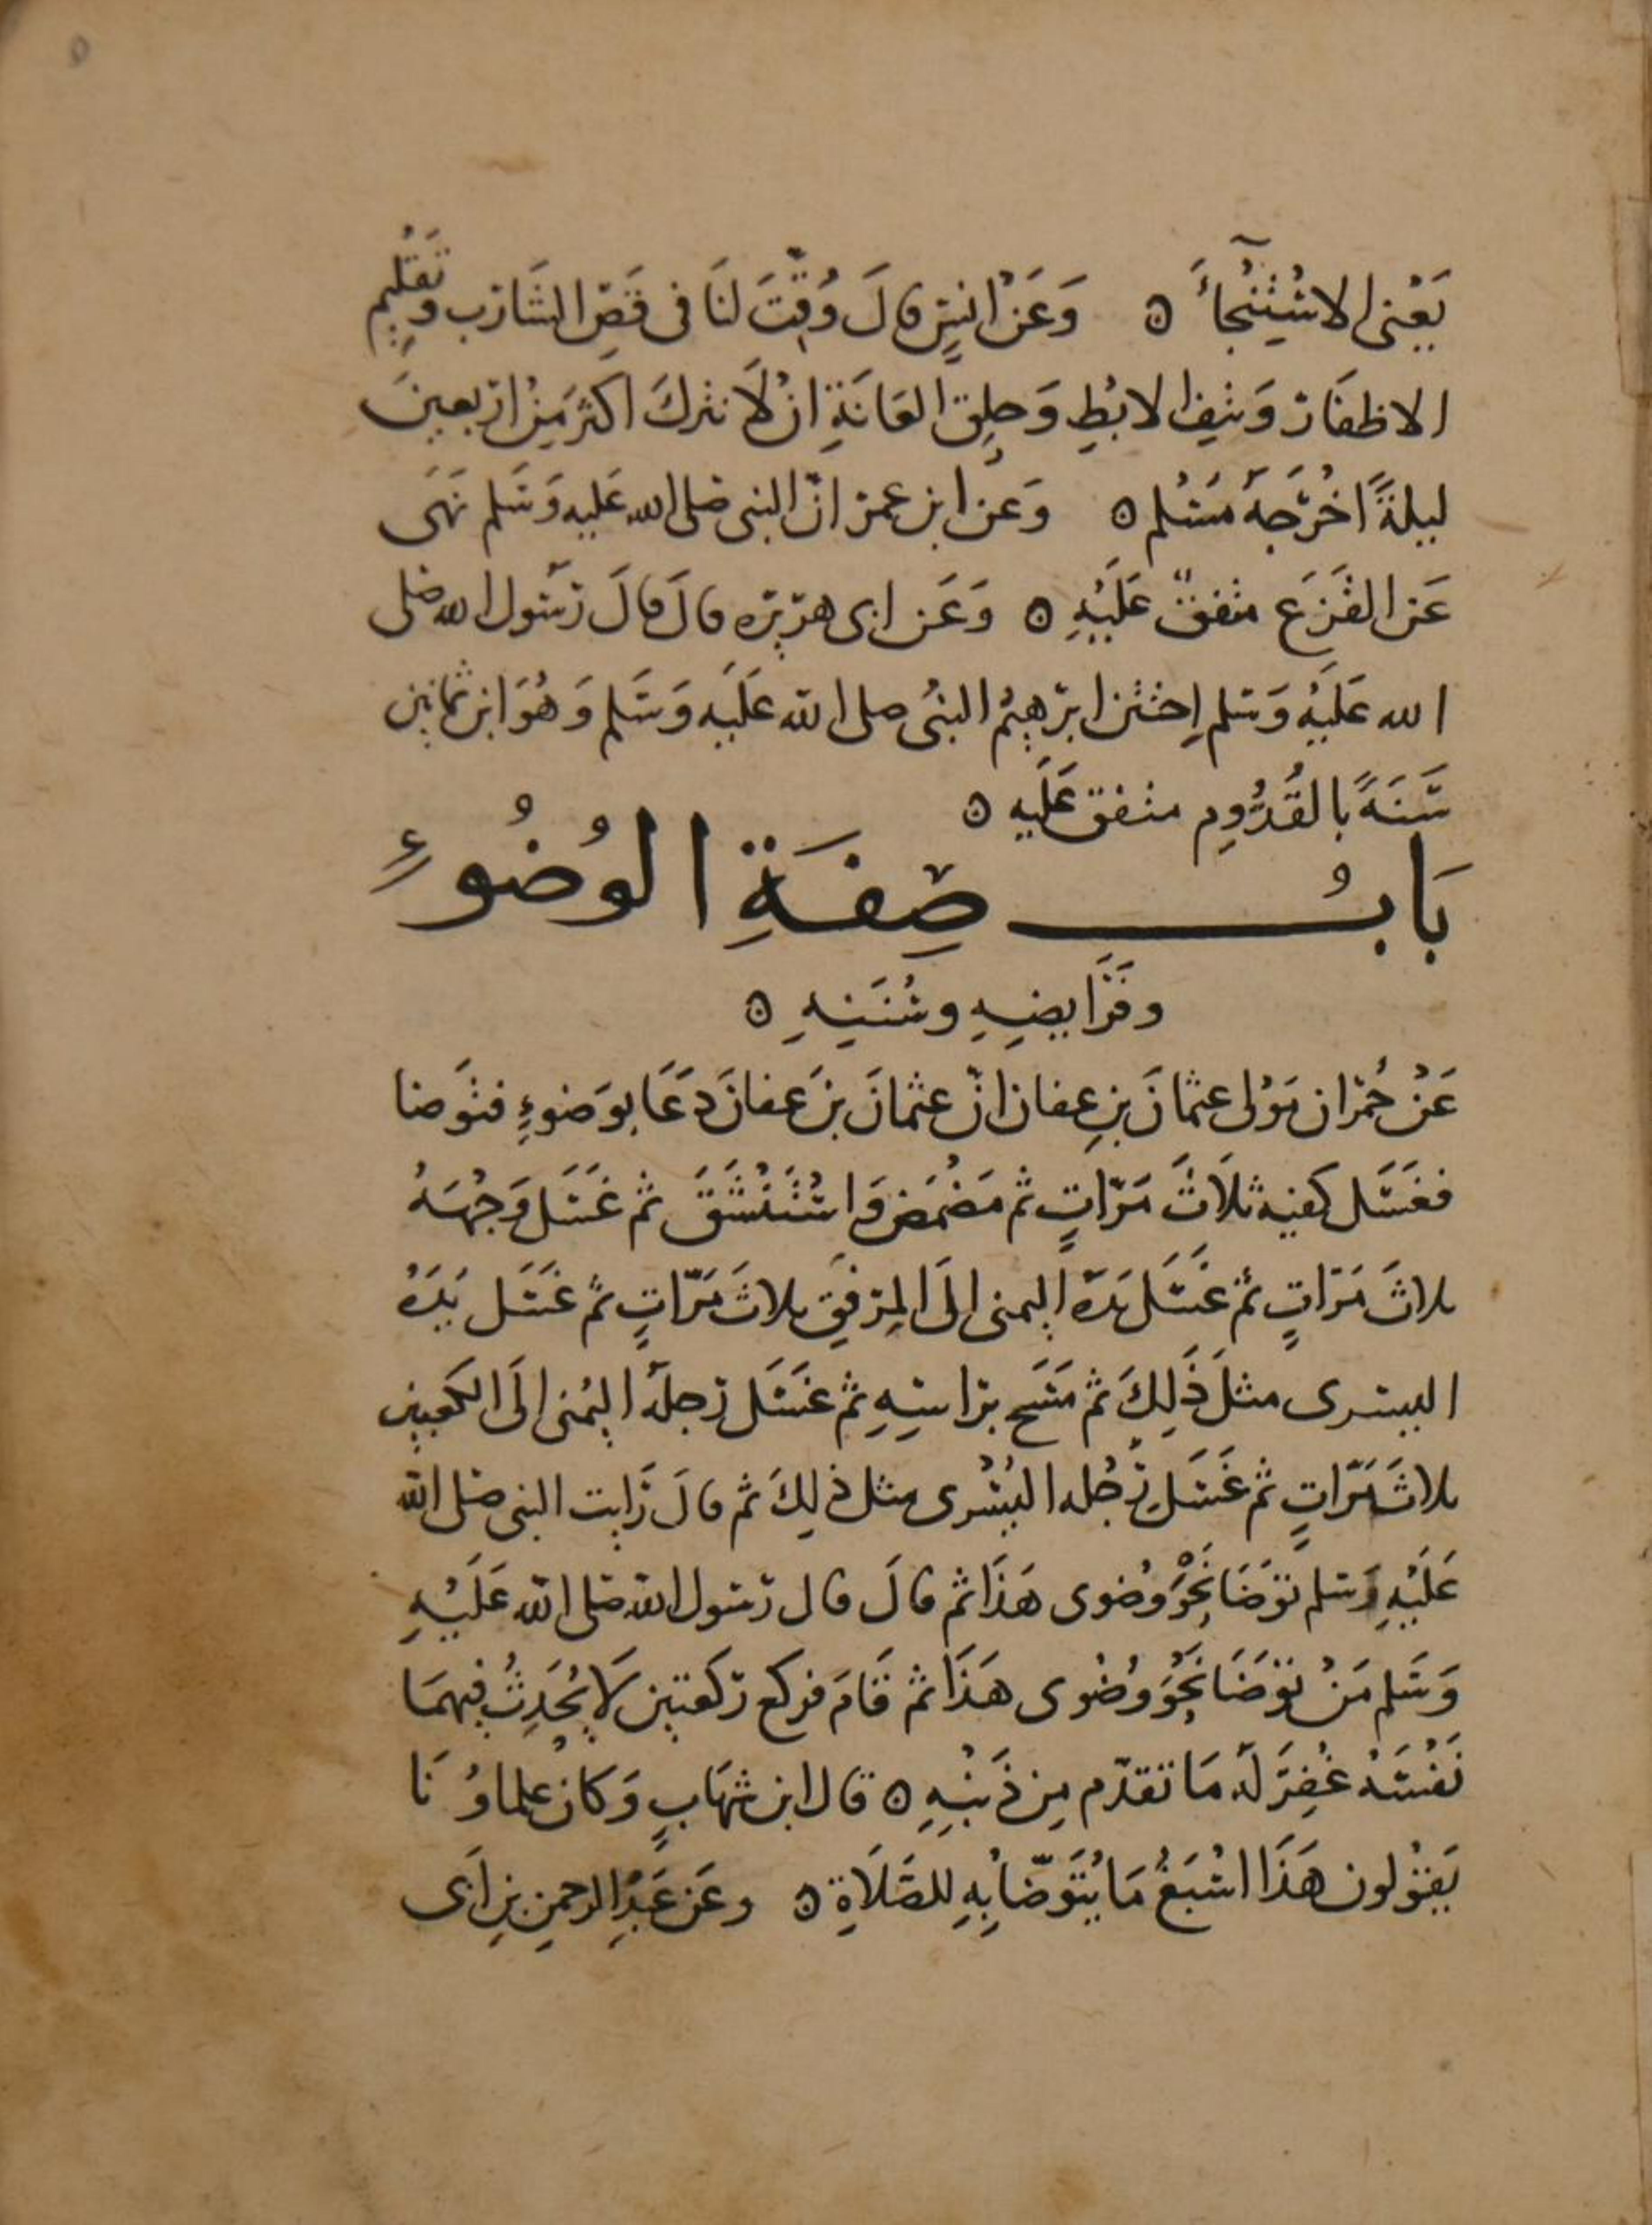 ٥
يَعْنى الاسْتِنْجَاءَ ه وَعَنْ انسٍ قالَ وُقِّتَ لنَا فى قَصِّ الشَارب وتَقْليم
الاظفَار وَنتِف الابْطِ وَحلِق العَانَةِ انْ لَا نترك اكثر مِنْ اربعينَ
ليلةً اخْرَجَهُ مسْلم ه وَعن ابن عمر انّ النبى صلى الله عَليه وَسَلم نَهَى
عَن القَزَع متفقٌ عَلَيْهِ ه وَعَن ابى هريره قالَ قالَ رَسُول الله صلى
الله عَلَيْهِ وَسَلم اِختتن ابرٰهيمُ النبىُ صلى الله عَلَيه وَسَلم وَهُوَ ابن ثمانين
سَنَةً بالقُدُّومِ متفق عَلَيه ه
بَابُ صِفَةِ الوُضُوءِ
وفَرَايضِهِ وسُنَنِهِ ه
عَنْ حُمْران مَوْلى عثمانَ بنِ عفان انّ عثمانَ بنَ عفانَ دَعَا بوَضوءٍ فتوَضا
فغَسَل كفيه ثلاثَ مَرّاتٍ ثم مَضْمَض وَاسْتَنْشَقَ ثم غَسَل وَجْهَهُ
ثلاثَ مَرّاتٍ ثم غَسَل يَدَهُ اليمنى الَى المِرْفَقِ ثلاثَ مَرّاتٍ ثم غَسَل يَدَهُ
اليسرى مثلَ ذَلِكَ ثم مَسَح براسِهِ ثم غسَل رجلَهُ اليُمنى الَى الكعبين
ثلاثَ مَرّاتٍ ثم غَسَل رِجْله اليُسْرى مثل ذلِكَ ثم قالَ رَايت النبى صلى الله
عَلَيْهِ وَسلم توَضَا نَحْوَ وُضوى هَذَا ثم قالَ قال رَسُول الله صلى الله عَلَيْهِ
وَسَلم مَنْ توَضَا نَحْوَ وُضُوى هَذَا ثم قَامَ فركع ركعتين لَا يُحَدِثُ فيهمَا
نَفْسَهُ غُفِرَ لَهُ مَا تقدّم مِن ذَنْبِهِ ه قال ابن شهَابٍ وَكانْ علماوُنَا
يَقُولون هَذَا اسْبَغُ مَا يُتَوَضّا بِهِ للصَّلَاةِ ه وعَن عَبْدِ الرحمنِ بنِ اَبى